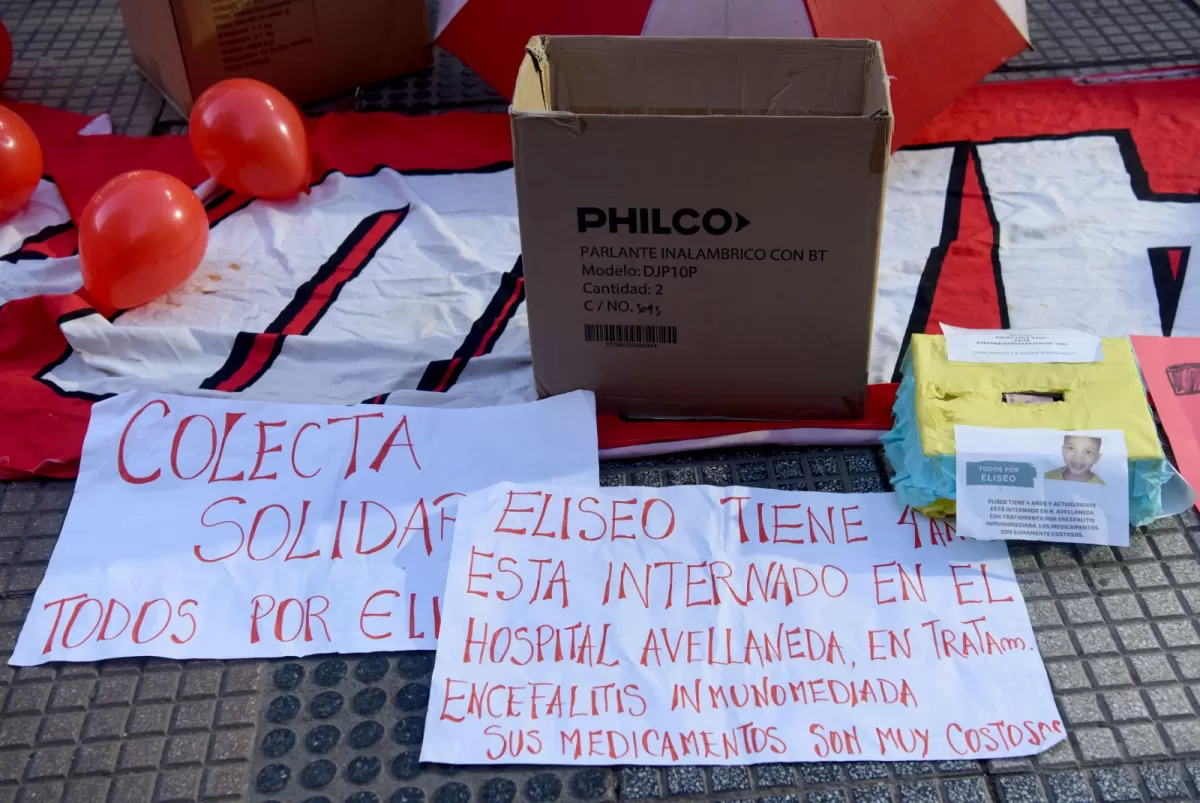 PHILCO
PARLANTE INALAMBRICO CON BT
Modelo: DJP10P
Cantidad: 2
C / NO.
COLECTA
SOLIDAR
TODOS POR ELI
ELISEO TIENE 4
ESTA INTERNADO EN EL
HOSPITAL AVELLANEDA, EN TRATAM.
ENCEFALITIS INMUNOMEDIADA
SUS MEDICAMENTOS SON MUY COSTOSOS
TODOS POR
ELISEO
ELISEO TIENE 4 AÑOS Y ACTUALMENTE
ESTÁ INTERNADO EN H. AVELLANEDA
CON TRATAMIENTO POR ENCEFALITIS
INMUNOMEDIADA. LOS MEDICAMENTOS
SON SUMAMENTE COSTOSOS.